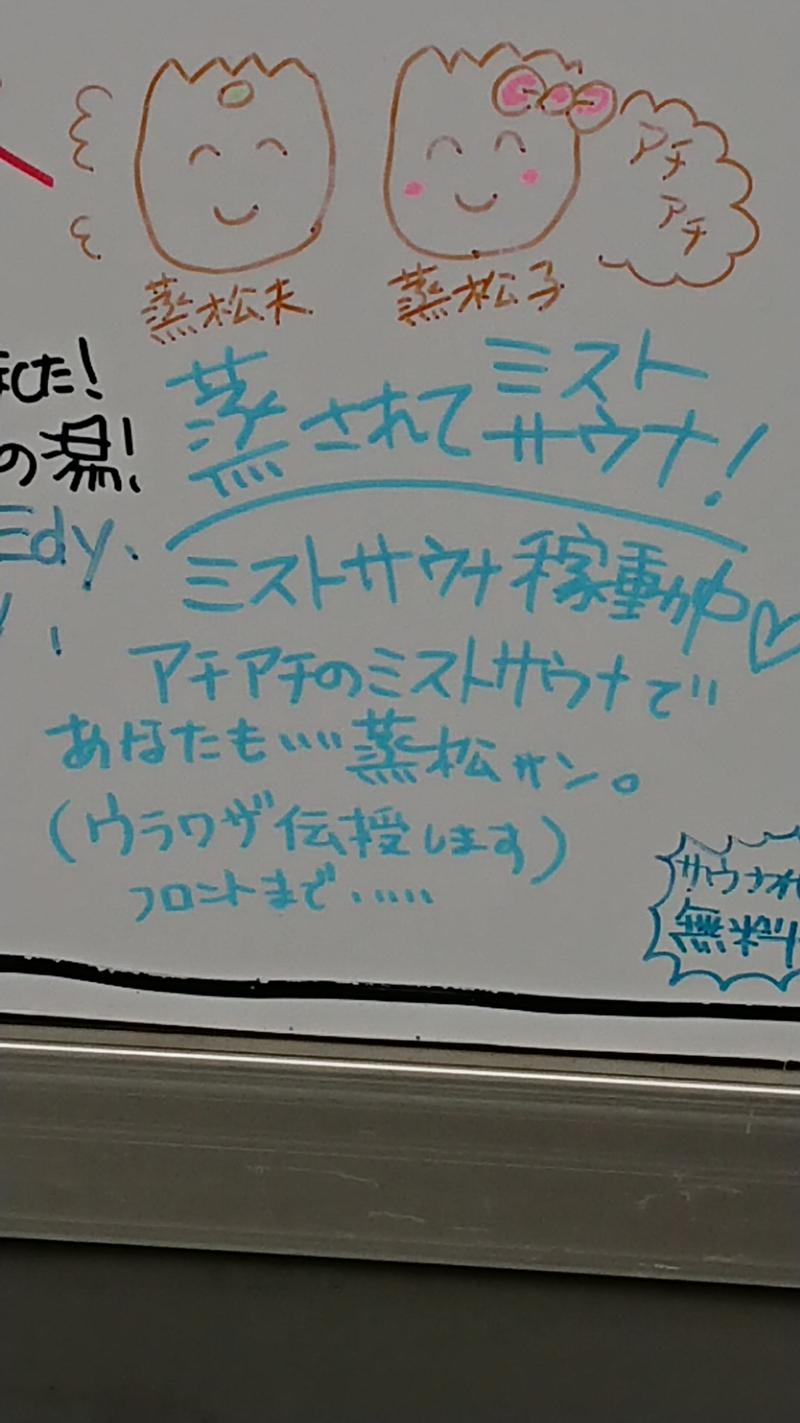 アチ
アチ
蒸松夫
蒸松子
した!
の湯!
Edy.
蒸されてミスト
サウナ!
ミストサウナ稼動中♡
アチアチのミストサウナで
あなたも…蒸松サン。
(ウラワザ伝授します)
フロントまで.....
サウナ
無料